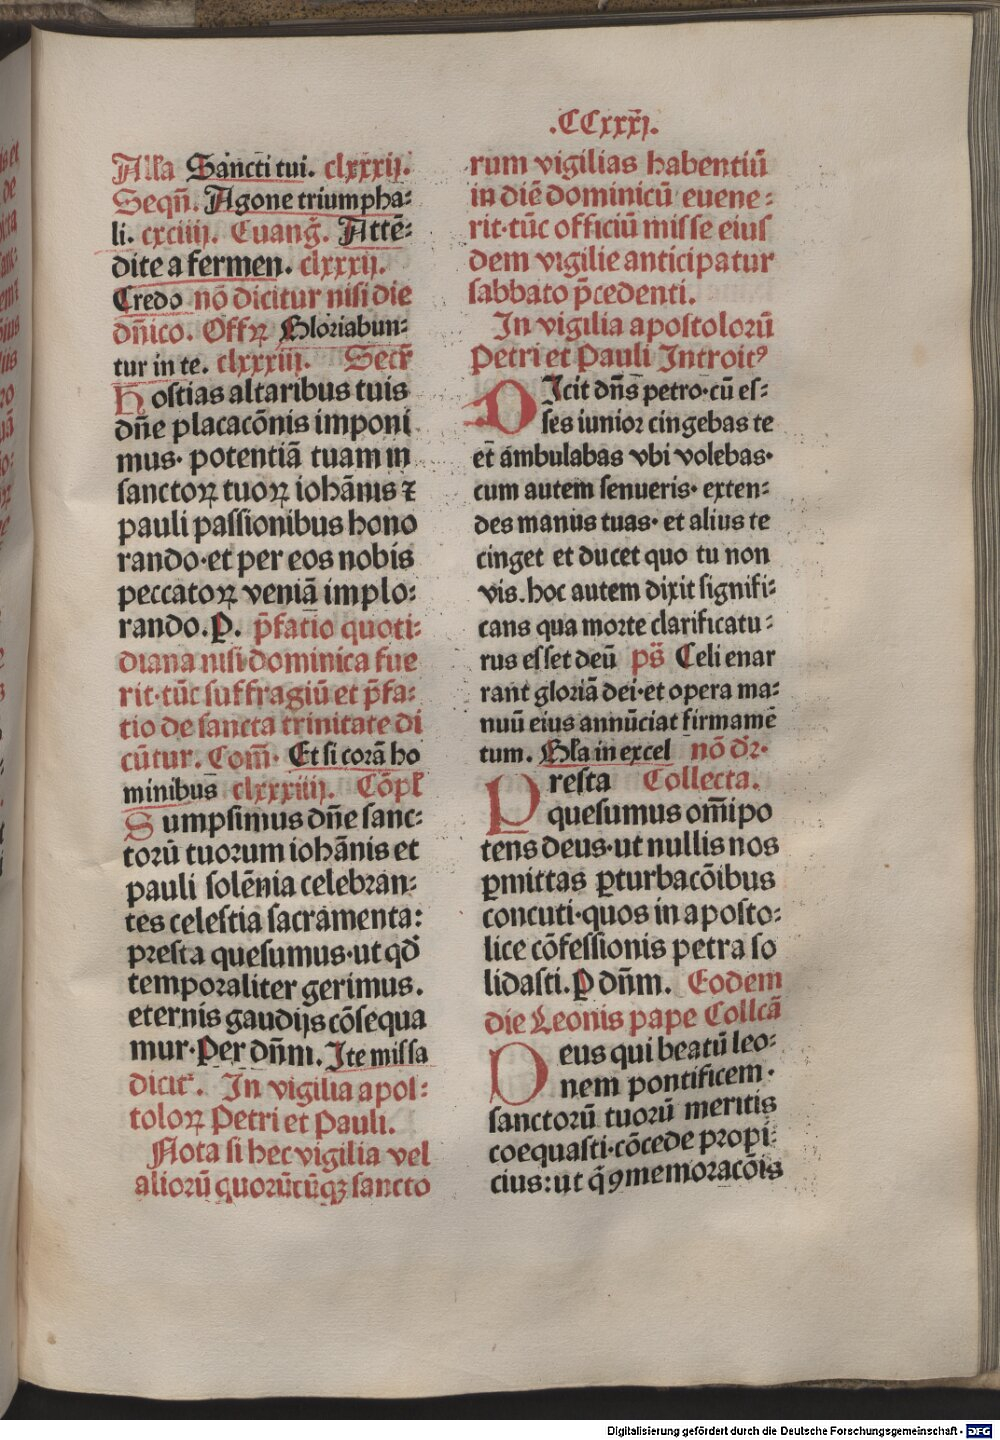 .CCxxxj̄.
Alła Sancti tui. clxxxij.
Seqn̄. Agone triumpha⸗
li. cxciiij. Euang̃. Attē⸗
dite a fermen. clxxxij.
Credo nō dicitur nisi die
dn̄ico. Offꝝ Gloriabun⸗
tur in te. clxxxiij. Secr̄
Hostias altaribus tuis
dn̄e placacōnis imponi
mus· potentiā tuam in
sanctoꝝ tuoꝝ iohānis ⁊
pauli passionibus hono
rando·et per eos nobis
peccatoꝝ veniā implo⸗
rando.P. p̄fatio quoti⸗
diana nisi dominica fue
rit·tūc suffragiū et p̄fa⸗
tio de sancta trinitate di
cūtur. Com̄· Et si corā ho
minibus clxxxiiij. Cōpł
Sumpsimus dn̄e sanc⸗
torū tuorum iohānis et
pauli solēnia celebran⸗
tes celestia sacramenta:
presta quesumus·ut qđ
temporaliter gerimus.
eternis gaudijs cōsequa
mur·Per dn̄m. Ite missa
dicitᷣ. In vigilia apos⸗
toloꝝ Petri et Pauli.
Nota si hec vigilia vel
aliorū quorūcūqꝫ sancto
rum vigilias habentiū
in diē dominicū euene⸗
rit·tūc officiū misse eius
dem vigilie anticipatur
sabbato p̄cedenti.
In vigilia apostolorū
Petri et Pauli Introitꝰ
DIcit dn̄s petro·cū es⸗
ses iunior cingebas te
et ambulabas vbi volebas·
cum autem senueris· exten⸗
des manus tuas· et alius te
cinget et ducet quo tu non
vis. hoc autem dixit signifi⸗
cans qua morte clarificatu⸗
rus esset deū ps̄ Celi enar
rant gloriā dei·et opera ma⸗
nuū eius annūciat firmamē
tum. Gła in excel nō dr̄·
Presta Collecta.
quesumus om̄ipo
tens deus·ut nullis nos
ꝑmittas ꝑturbacōibus
concuti·quos in aposto⸗
lice cōfessionis petra so
lidasti.P dn̄m. Eodem
die Leonis pape Collcā
Deus qui beatū leo⸗
nem pontificem·
sanctorū tuorū meritis
coequasti·cōcede propi⸗
cius:ut q̄ ꝯmemoracōis
Digitalisierung gefördert durch die Deutsche Forschungsgemeinschaft - DFG